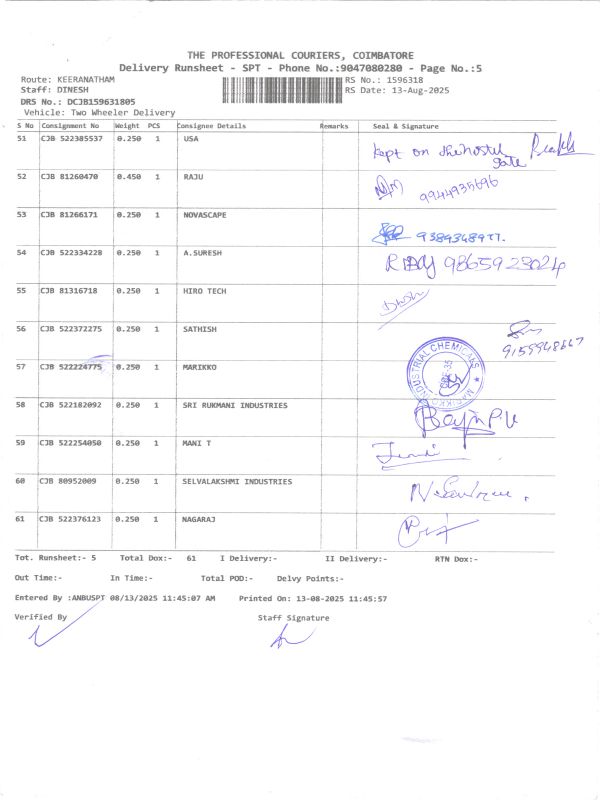 THE PROFESSIONAL COURIERS, COIMBATORE
Delivery Runsheet - SPT - Phone No.:9047080280 - Page No.:5
Route: KEERANATHAM RS No.: 1596318
Staff: DINESH RS Date: 13-Aug-2025
DRS No.: DCJB159631805
Vehicle: Two Wheeler Delivery
S No Consignment No Weight PCS Consignee Details Remarks Seal & Signature
51 CJB 522385537 0.250 1 USA kept on the hostel gate
52 CJB 81260470 0.450 1 RAJU 9944935696
53 CJB 81266171 0.250 1 NOVASCAPE 9389348977.
54 CJB 522334228 0.250 1 A.SURESH 9865923024
55 CJB 81316718 0.250 1 HIRO TECH
56 CJB 522372275 0.250 1 SATHISH
57 CJB 522224775 0.250 1 MARIKKO INDUSTRIAL CHEMICALS
58 CJB 522182092 0.250 1 SRI RUKMANI INDUSTRIES
59 CJB 522254050 0.250 1 MANI T
60 CJB 80952009 0.250 1 SELVALAKSHMI INDUSTRIES
61 CJB 522376123 0.250 1 NAGARAJ
Tot. Runsheet:- 5 Total Dox:- 61 I Delivery:- II Delivery:- RTN Dox:-
Out Time:- In Time:- Total POD:- Delvy Points:-
Entered By :ANBUSPT 08/13/2025 11:45:07 AM Printed On: 13-08-2025 11:45:57
Verified By Staff Signature